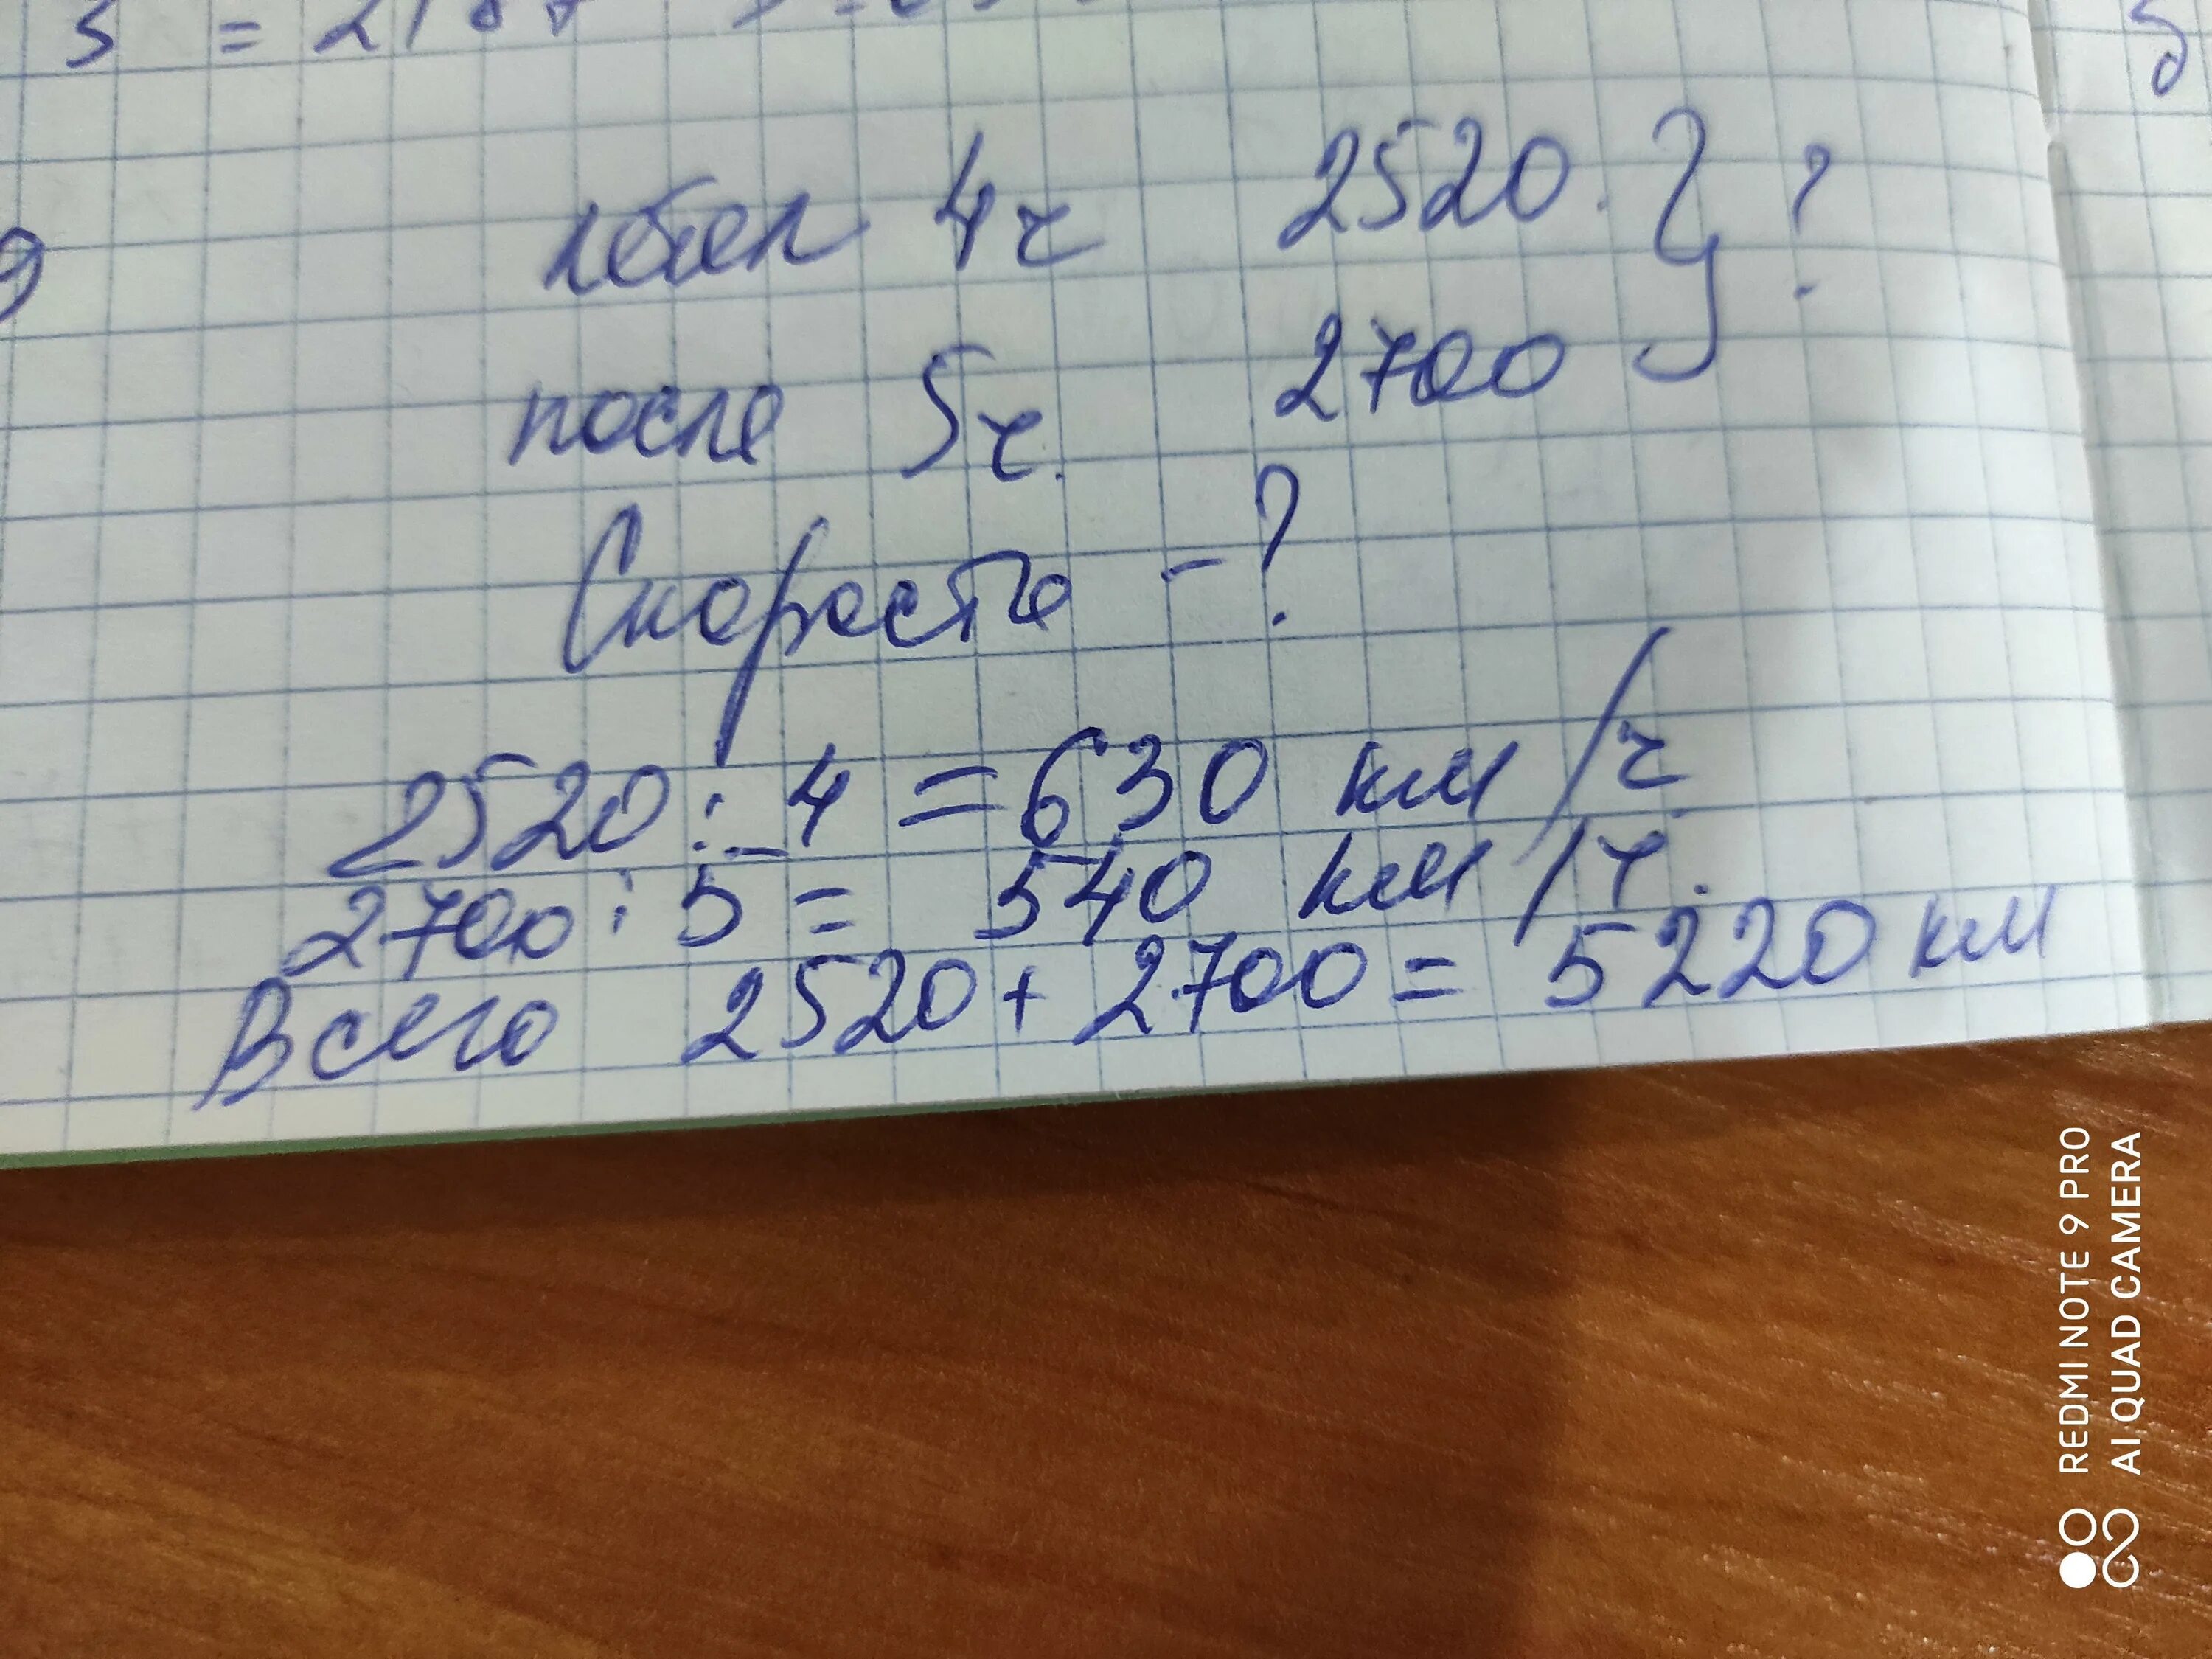 4ч 2520. } ?
после 5ч. 2700
Скорость - ?
2520 : 4 = 630 км/ч
2700 : 5 = 540 км/ч.
Всего 2520 + 2700 = 5220 км
REDMI NOTE 9 PRO
AI QUAD CAMERA